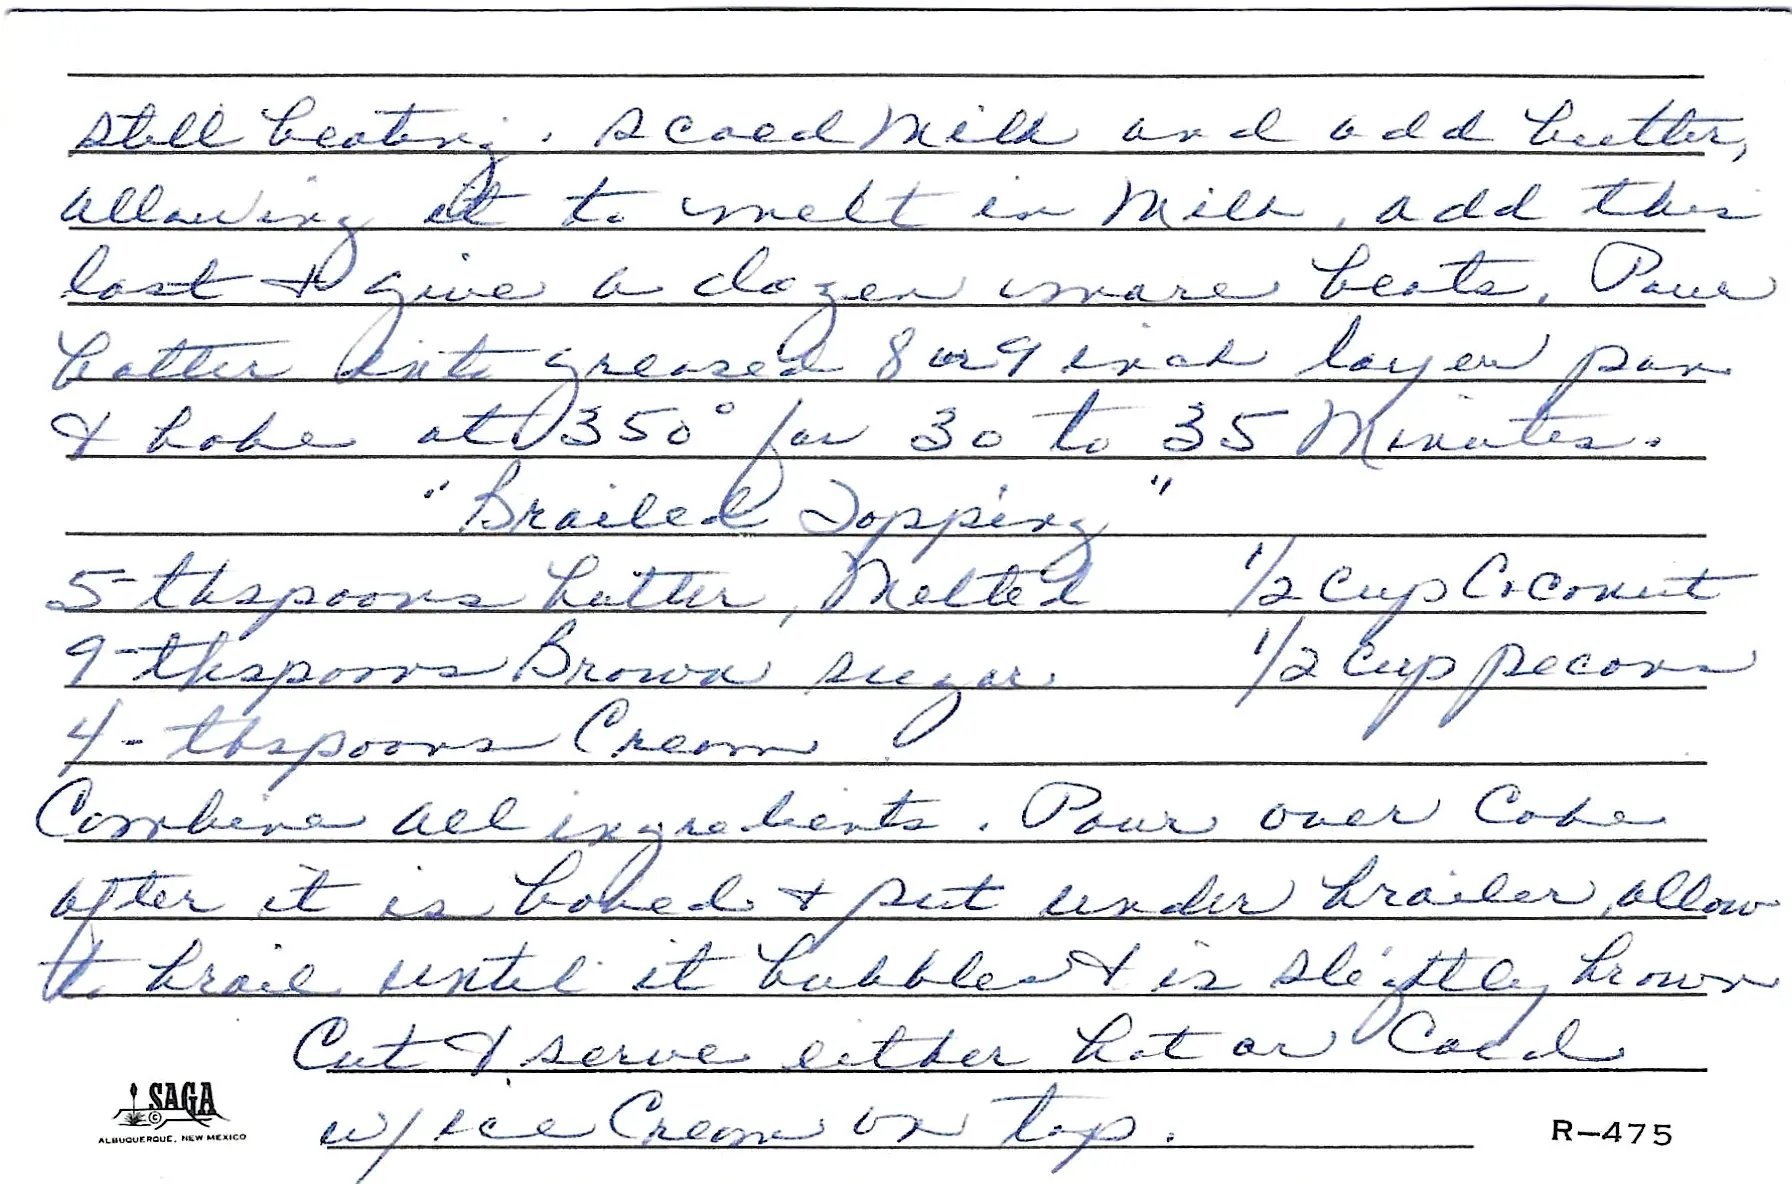 still beating. Scald Milk and add butter,
allowing it to melt in Milk, add this
last & give a dozen more beats. Pour
batter into greased 8 or 9 inch layer pan
& bake at 350° for 30 to 35 Minutes.
"Broiled Topping"
5-tbspoons butter, Melted 1/2 Cup Coconut
9-tbspoons Brown sugar 1/2 Cup pecans
4-tbspoons Cream
Combine all ingredients. Pour over Cake
after it is baked & put under broiler, allow
to broil until it bubbles & is slightly brown
Cut & serve either hot or Cold
w/ice Cream on top.
SAGA ©
ALBUQUERQUE, NEW MEXICO
R-475